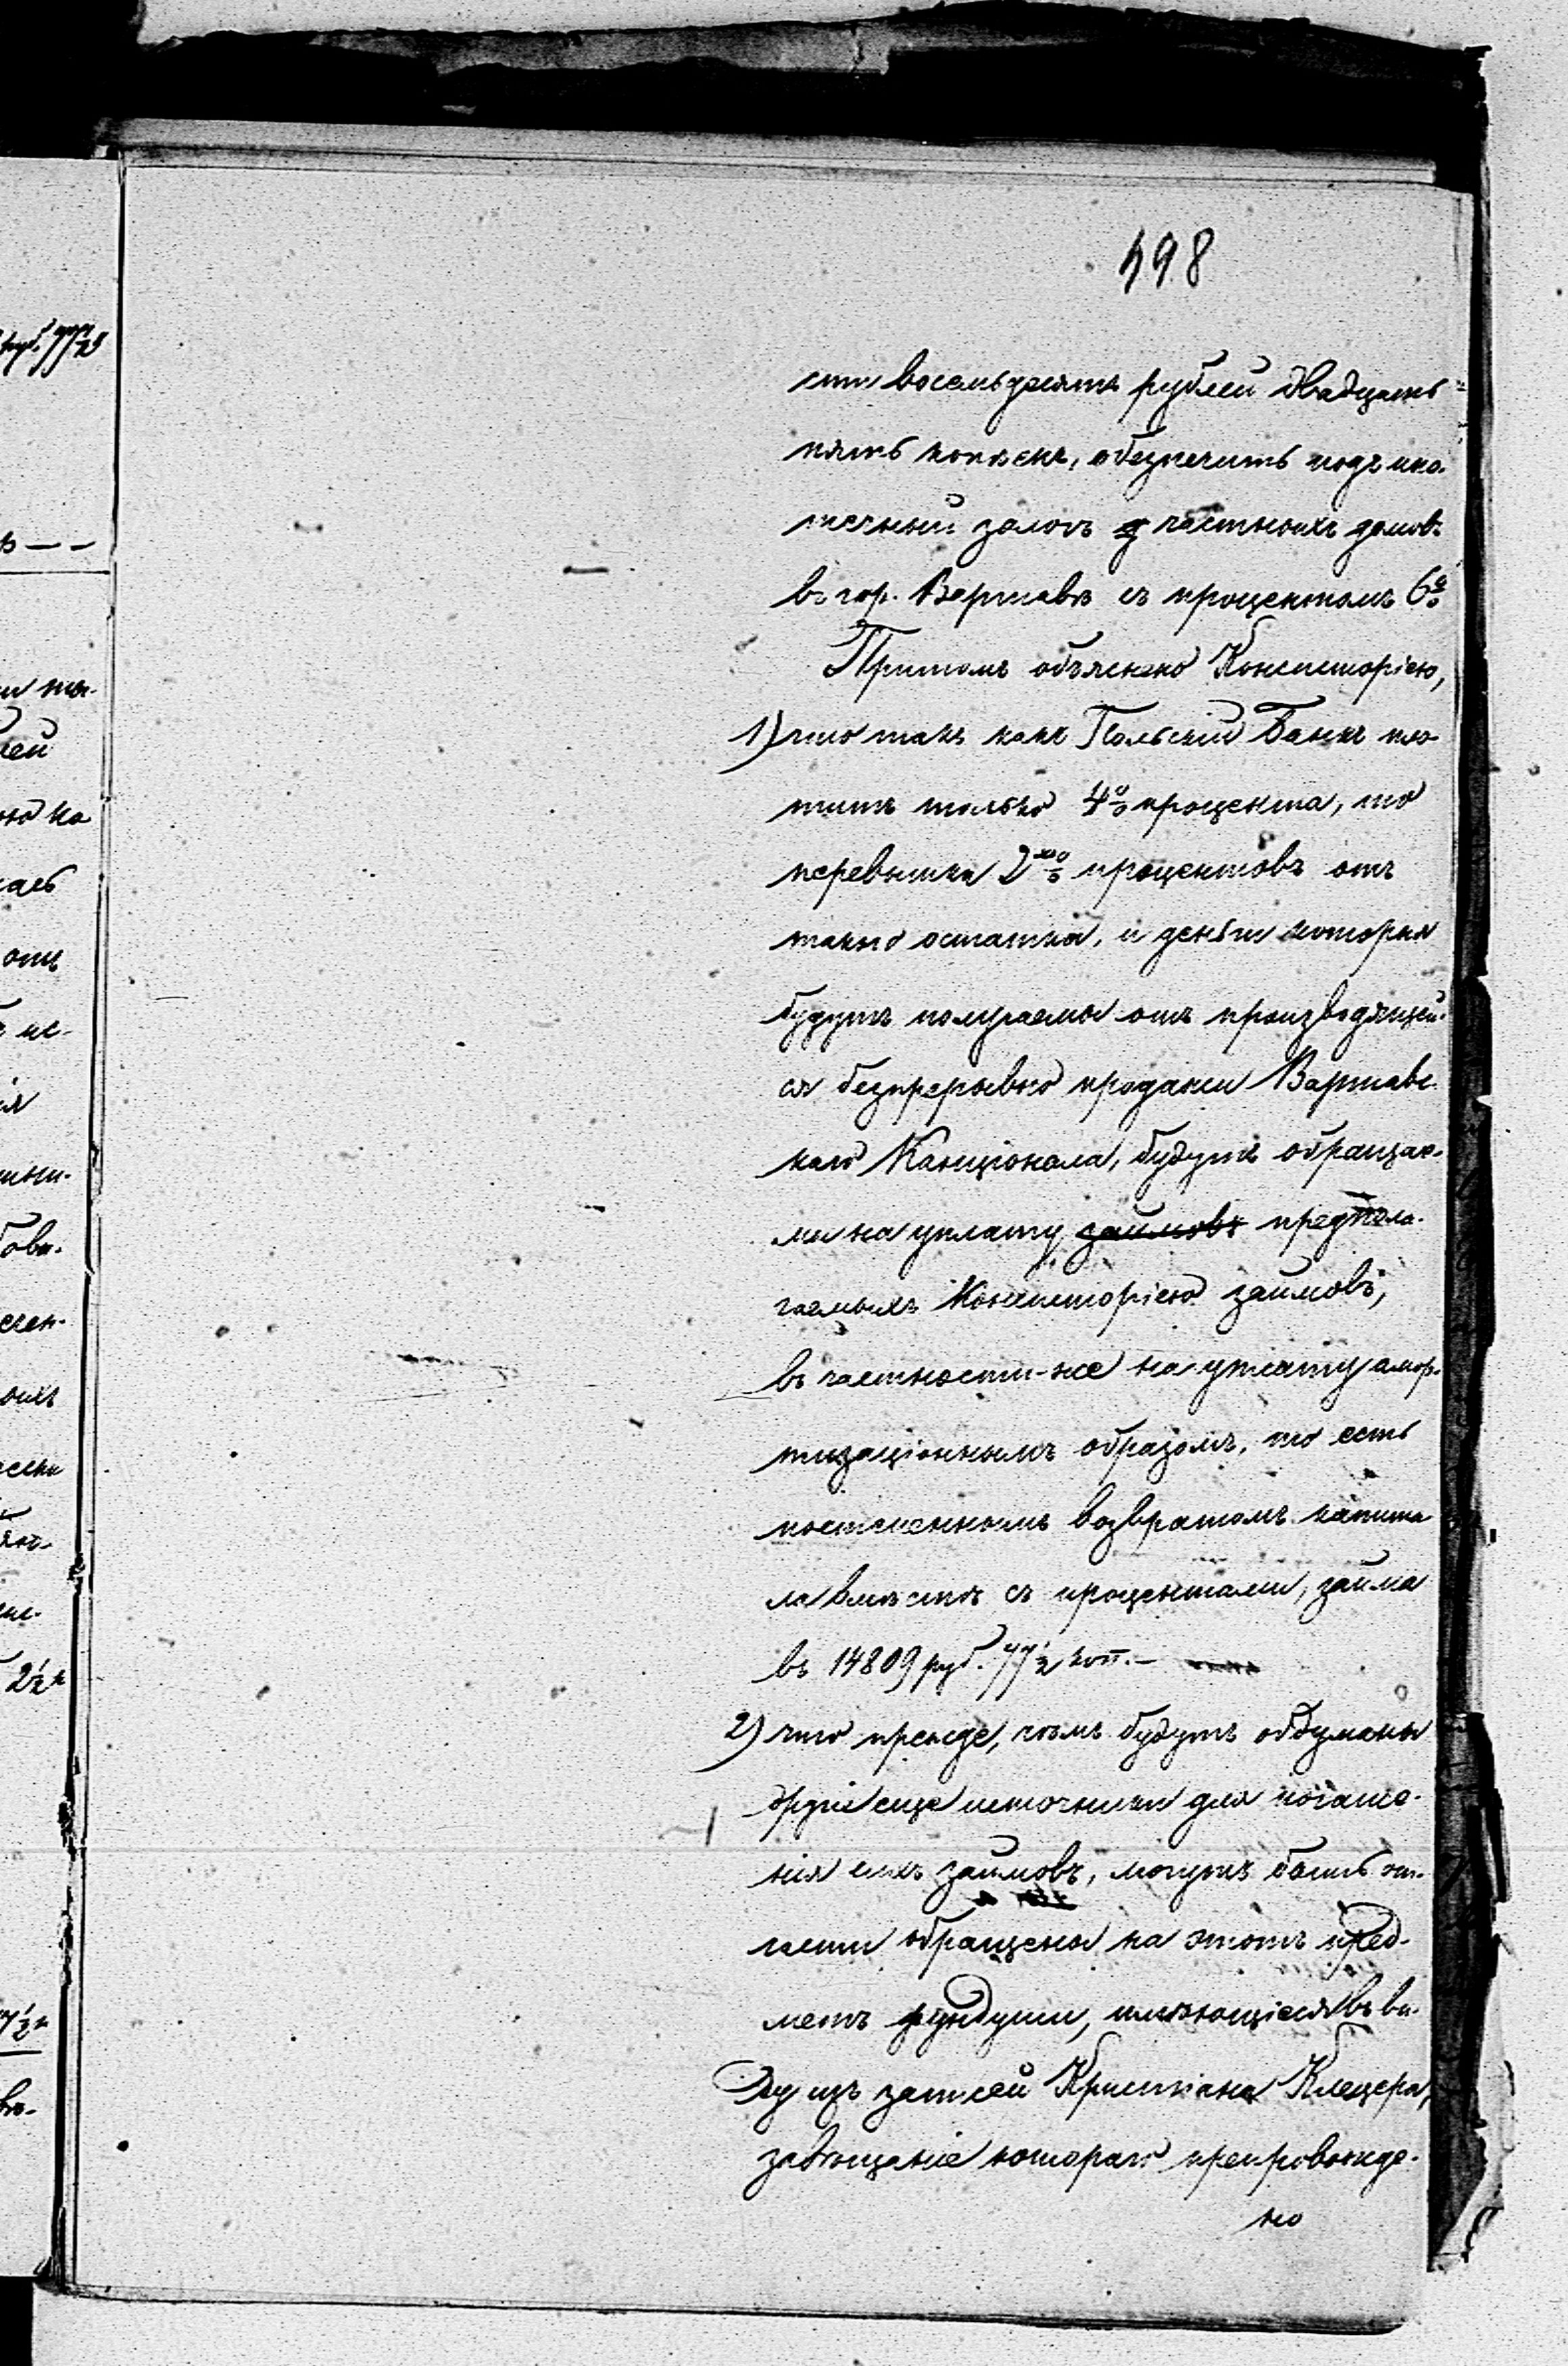 498
сти восемьдесятъ рублей двадцать
пять копѣекъ, обезпечить подъ ипо-
течный залогъ частныхъ домовъ
въ гор. Варшавѣ съ процентомъ 6%
Притомъ объяснено Консисторіею,
1) что такъ какъ Польскій Банкъ пла-
титъ только 4% процента, то
перевышка 2% процентовъ отъ
такого остатка, и деньги которыя
будутъ получаемы отъ производящей-
ся безпрерывно продажи Варшавс-
каго Канціонала, будутъ обращае-
мы на уплату займовъ предпола-
гаемыхъ Консисторіею займовъ,
въ частности-же на уплату амор-
тизаціоннымъ образомъ, то есть
постепеннымъ возвратомъ капита-
ла вмѣстѣ съ процентами, займа
въ 14809 руб. 77½ коп. —
2) что прежде, чѣмъ будутъ обдуманы
другіе еще источники для погаше-
нія сихъ займовъ, могутъ быть от-
части обращены на этотъ пред-
метъ фундуши, имѣющіеся въ ви-
ду изъ записей Кристіана Клецера,
завѣщаніе котораго препровожде-
но
руб. 77½
ми ты-
лей
ною на
отъ
ис-
ія
2½к
7½к